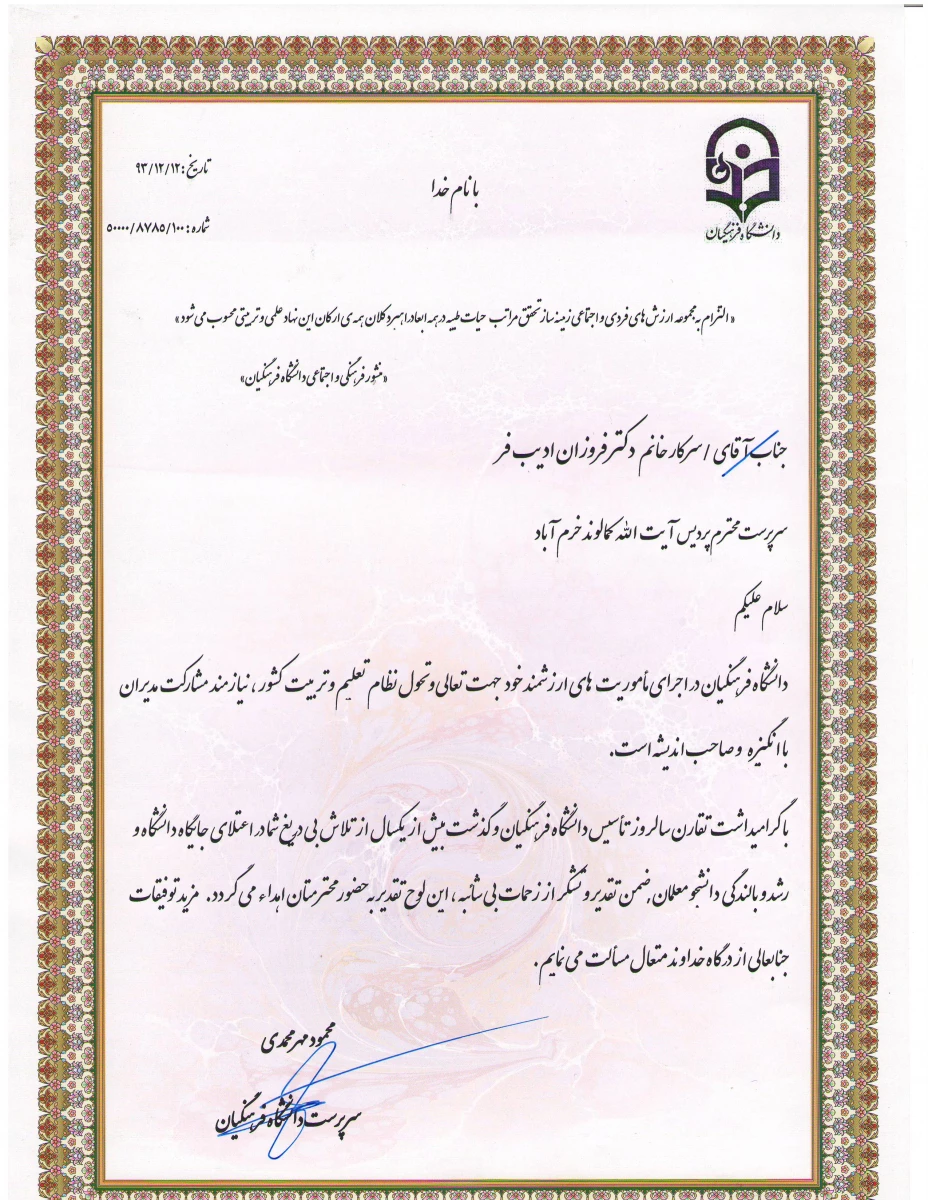 دانشگاه فرهنگیان
تاریخ: ۹۳/۱۲/۱۲
با نام خدا
شماره: ۵۰۰۰۰/۸۷۸۵/۱۰۰
«التزام به مجموعه ارزش های فردی و اجتماعی زمینه ساز تحقق مراتب حیات طیبه در همه ابعاد راهبرد کلان همه ی ارکان این نهاد علمی و تربیتی محسوب می شود»
«منشور فرهنگی و اجتماعی دانشگاه فرهنگیان»
جناب آقای / سرکار خانم دکتر فروزان ادیب فر
سرپرست محترم پردیس آیت الله کمالوند خرم آباد
سلام علیکم
دانشگاه فرهنگیان در اجرای مأموریت های ارزشمند خود جهت تعالی و تحول نظام تعلیم و تربیت کشور، نیازمند مشارکت مدیران
با انگیزه و صاحب اندیشه است.
با گرامیداشت تقارن سالروز تأسیس دانشگاه فرهنگیان و گذشت بیش از یکسال از تلاش بی دریغ شما در اعتلای جایگاه دانشگاه و
رشد و بالندگی دانشجو معلمان, ضمن تقدیر و تشکر از زحمات بی شائبه، این لوح تقدیر به حضور محترمتان اهداء می گردد. مزید توفیقات
جنابعالی از درگاه خداوند متعال مسألت می نمایم.
محمود مهرمحمدی
سرپرست دانشگاه فرهنگیان